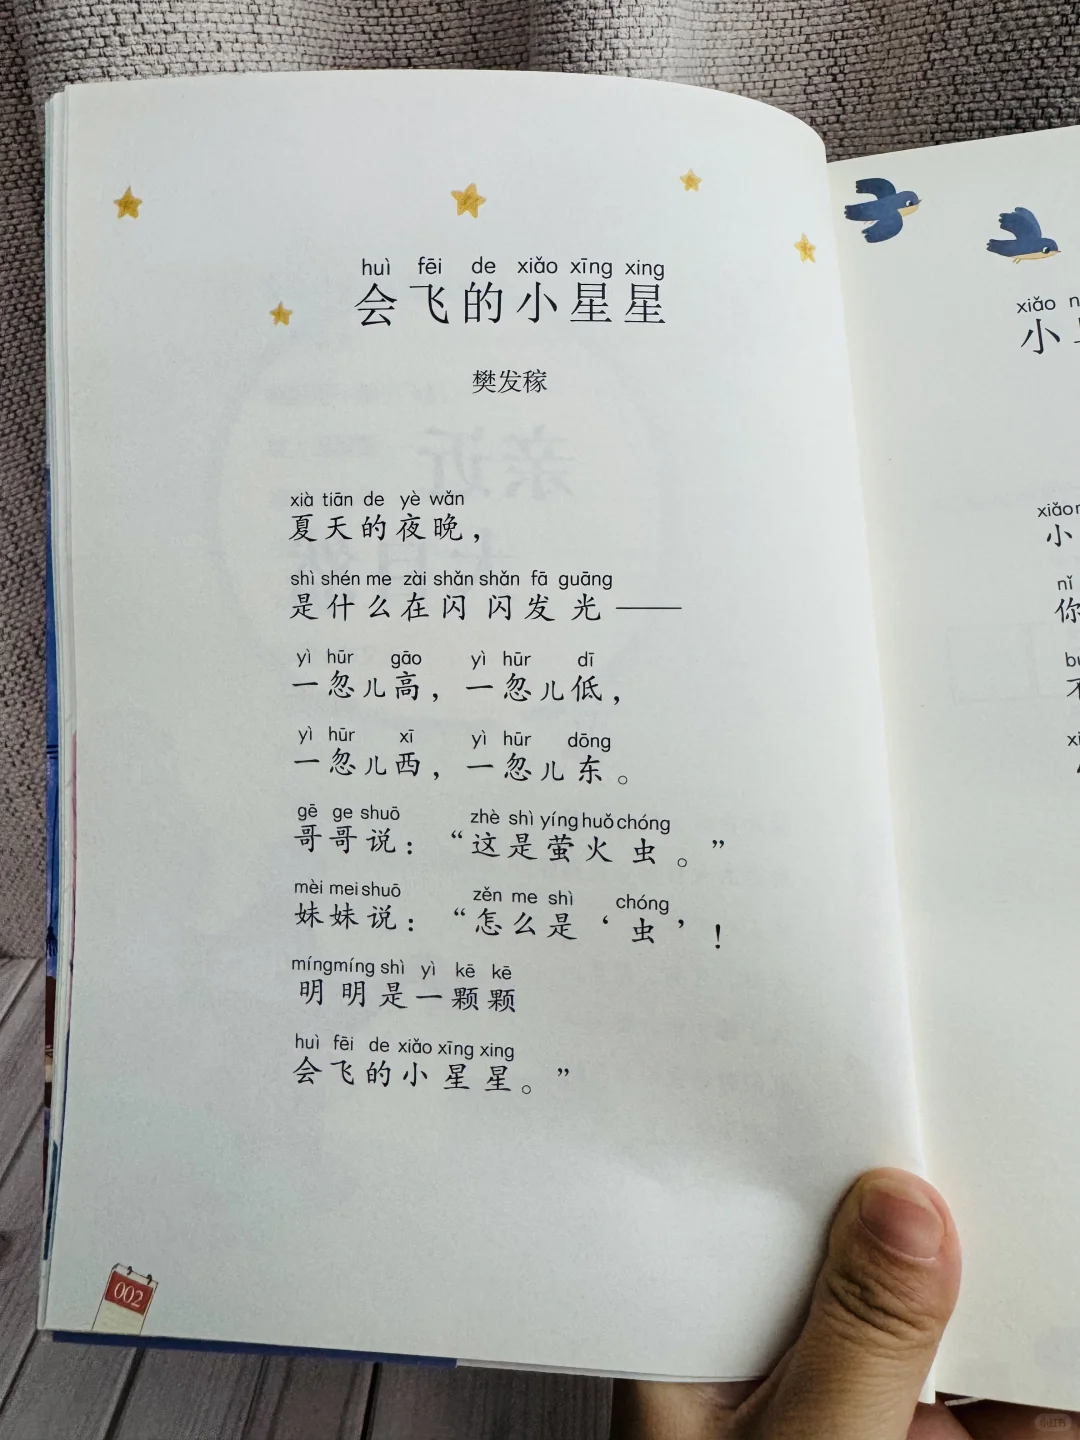 huì fēi de xiǎo xīng xing
会飞的小星星
樊发稼
xià tiān de yè wǎn
夏天的夜晚，
shì shén me zài shǎn shǎn fā guāng
是什么在闪闪发光——
yì hūr gāo yì hūr dī
一忽儿高，一忽儿低，
yì hūr xī yì hūr dōng
一忽儿西，一忽儿东。
gē ge shuō zhè shì yíng huǒ chóng
哥哥说：“这是萤火虫。”
mèi mei shuō zěn me shì chóng
妹妹说：“怎么是‘虫’！
míng míng shì yì kē kē
明明是一颗颗
huì fēi de xiǎo xīng xing
会飞的小星星。”
002
xiǎo
小
xiǎo
小
nǐ
你